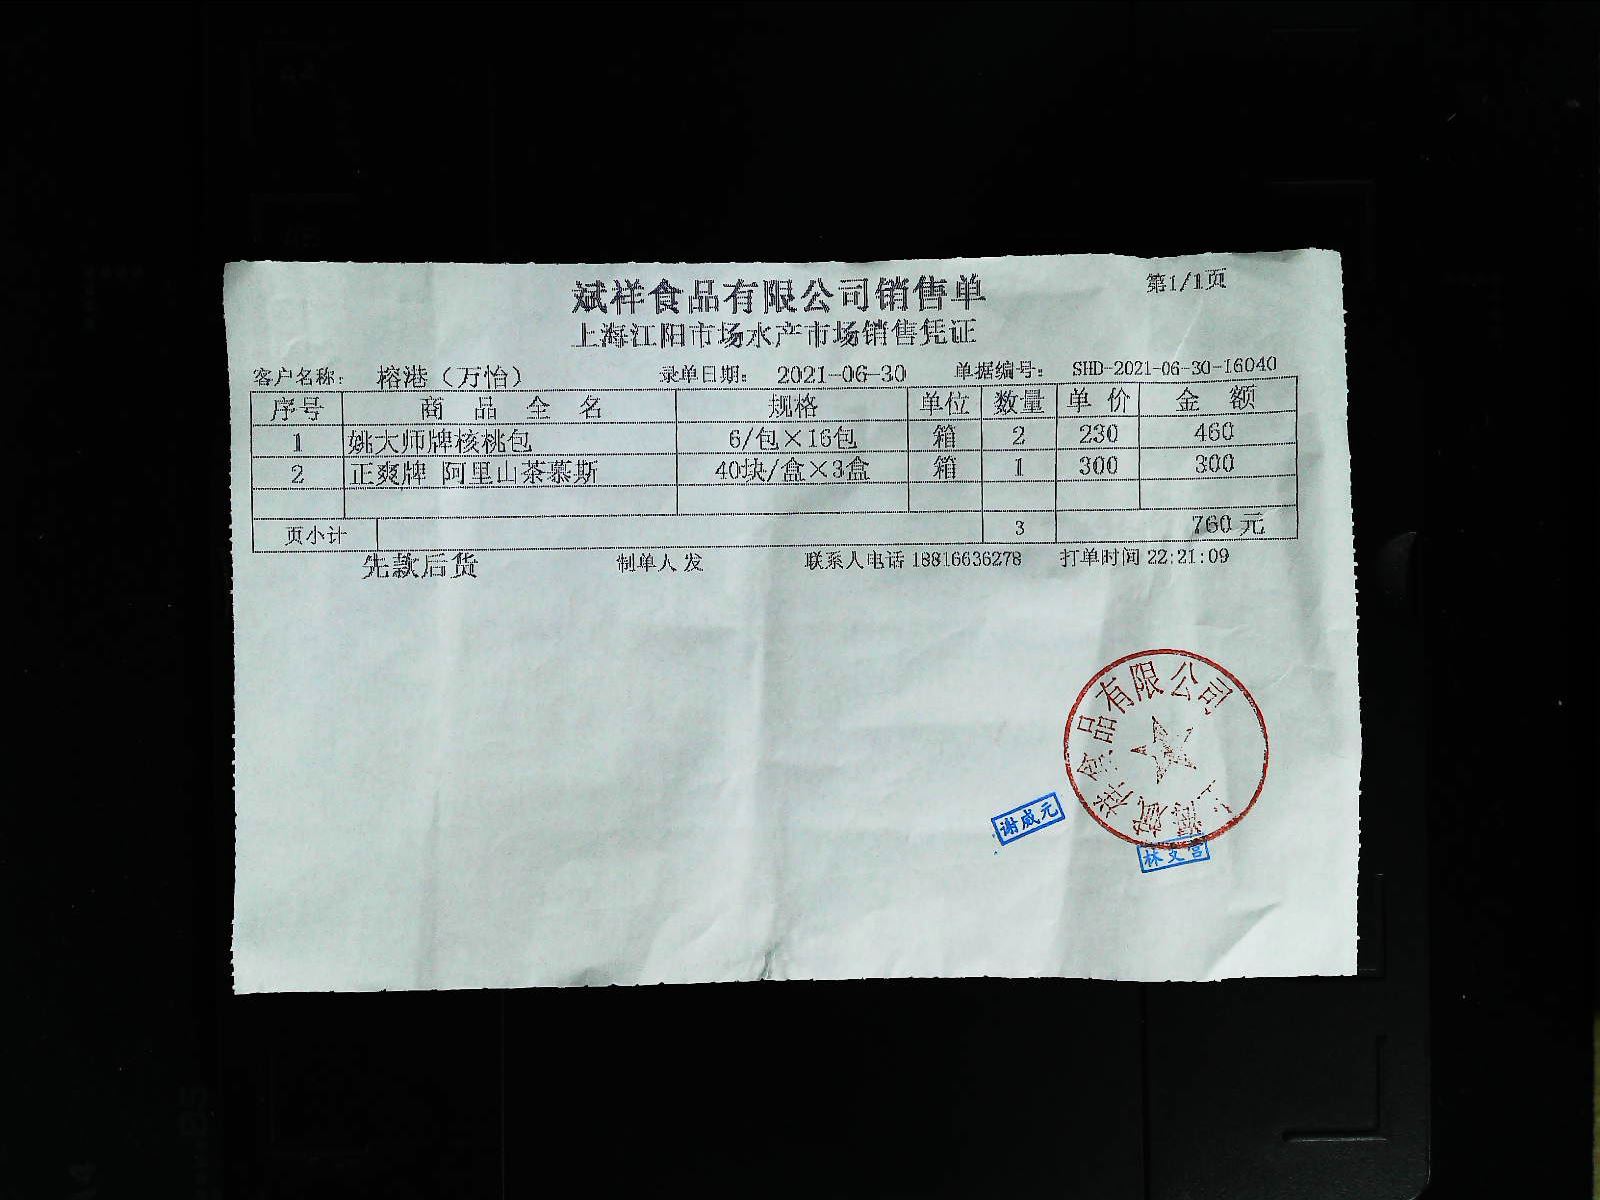 斌祥食品有限公司销售单
第1/1页
上海江阳市场水产市场销售凭证
客户名称： 榕港（万怡） 录单日期： 2021-06-30 单据编号： SHD-2021-06-30-16040
序号 商 品 全 名 规格 单位 数量 单 价 金 额
1 姚大师牌核桃包 6/包×16包 箱 2 230 460
2 正爽牌 阿里山茶慕斯 40块/盒×3盒 箱 1 300 300
页小计 3 760 元
先款后货 制单人 发 联系人电话 18816636278 打单时间 22:21:09
上海斌祥食品有限公司
谢威元
林 营